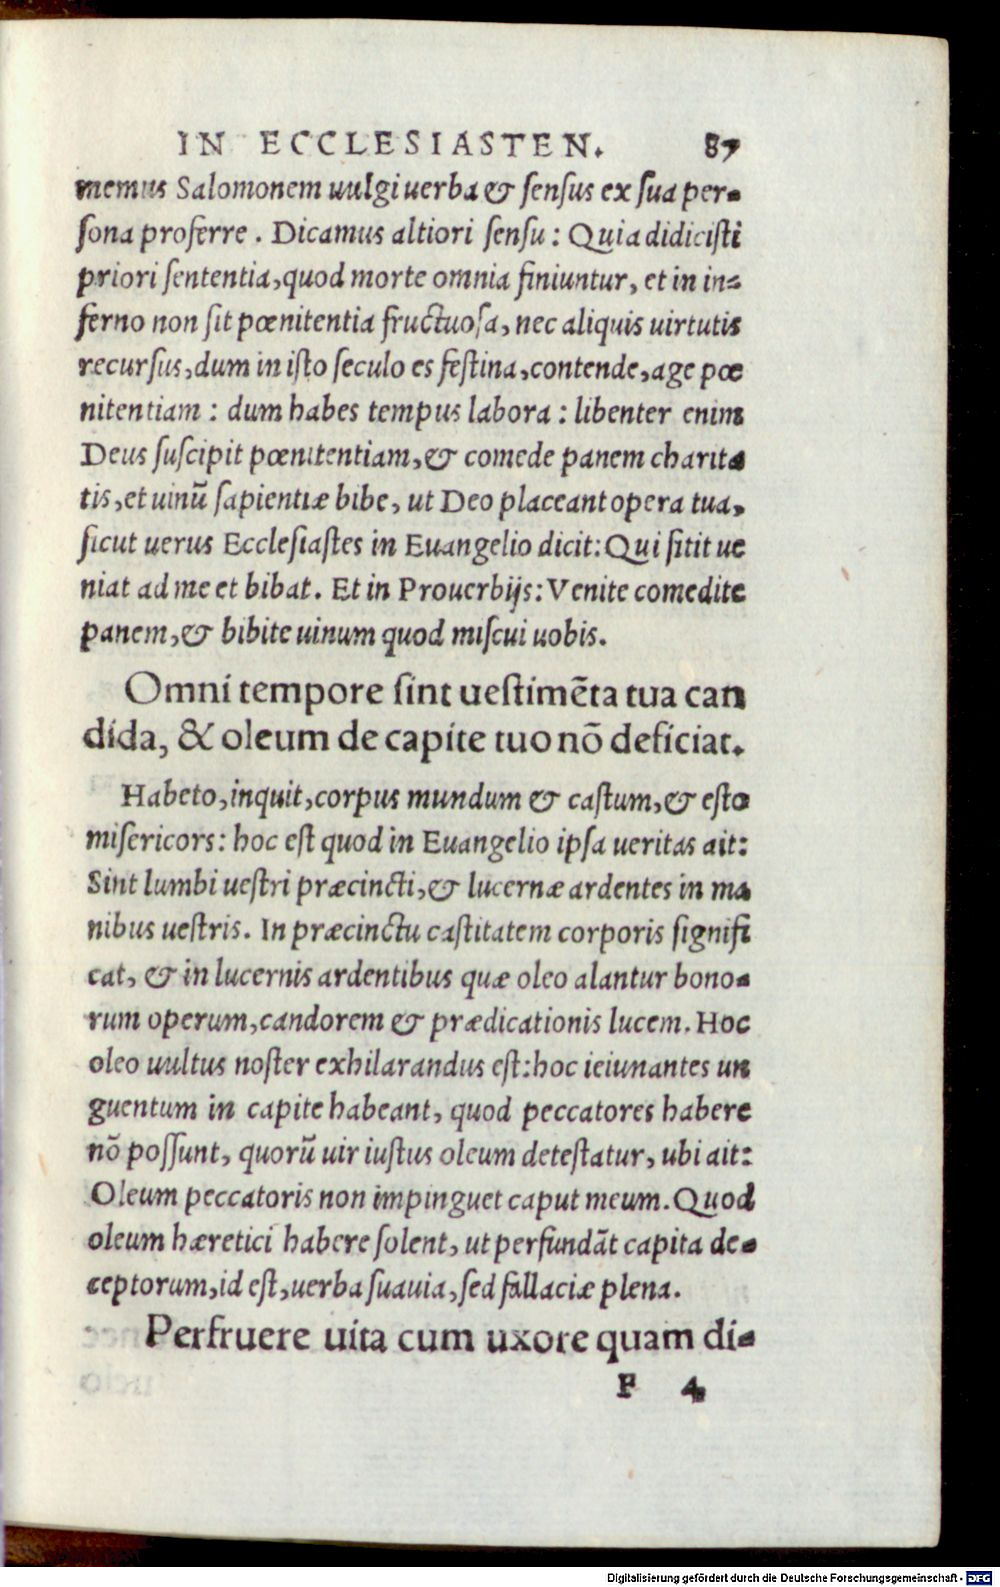 IN ECCLESIASTEN. 87
memus Salomonem uulgi uerba & sensus ex sua per-
sona proferre. Dicamus altiori sensu: Quia didicisti
priori sententia, quod morte omnia finiuntur, et in in-
ferno non sit pœnitentia fructuosa, nec aliquis uirtutis
recursus, dum in isto seculo es festina, contende, age pœ
nitentiam: dum habes tempus labora: libenter enim
Deus suscipit pœnitentiam, & comede panem charita
tis, et uinũ sapientiæ bibe, ut Deo placeant opera tua,
sicut uerus Ecclesiastes in Euangelio dicit: Qui sitit ue
niat ad me et bibat. Et in Prouerbijs: Venite comedite
panem, & bibite uinum quod miscui uobis.
Omni tempore sint uestimẽta tua can
dida, & oleum de capite tuo nõ deficiat.
Habeto, inquit, corpus mundum & castum, & esto
misericors: hoc est quod in Euangelio ipsa ueritas ait:
Sint lumbi uestri præcincti, & lucernæ ardentes in ma
nibus uestris. In præcinctu castitatem corporis signifi
cat, & in lucernis ardentibus quæ oleo alantur bono-
rum operum, candorem & prædicationis lucem. Hoc
oleo uultus noster exhilarandus est: hoc ieiunantes un
guentum in capite habeant, quod peccatores habere
nõ possunt, quorũ uir iustus oleum detestatur, ubi ait:
Oleum peccatoris non impinguet caput meum. Quod
oleum hæretici habere solent, ut perfundãt capita de-
ceptorum, id est, uerba suauia, sed fallaciæ plena.
Perfruere uita cum uxore quam di-
F 4
Digitalisierung gefördert durch die Deutsche Forschungsgemeinschaft - DFG